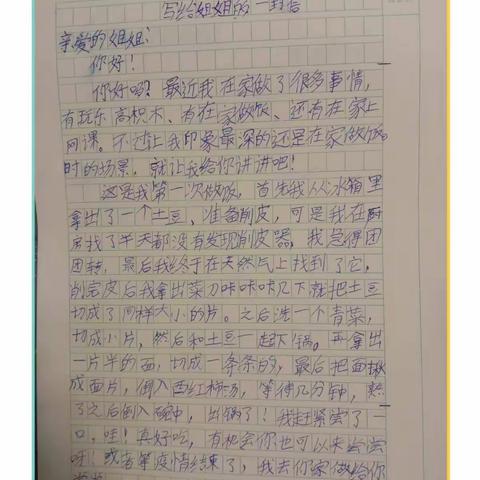 写给姐姐的一封信
亲爱的姐姐:
你好!
你好吗?最近我在家做了很多事情,
有玩乐高积木、有在家做饭、还有在家上
网课。不过让我印象最深的还是在家做饭
时的场景,就让我给你讲讲吧!
这是我第一次做饭。首先我从冰箱里
拿出了一个土豆、准备削皮,可是我在厨
房找了半天都没有发现削皮器,我急得团
团转,最后我终于在天然气上找到了它,
削完皮后我拿出菜刀咔咔咔几下就把土豆
切成了同样大小的片。之后洗一个青菜,
切成小片,然后和土豆一起下锅。再拿出
一片半的面,切成一条条的,最后把面揪
成面片,倒入西红柿汤,等待几分钟,熟
了之后倒入碗中,出锅了!我赶紧尝了一
口,哇!真好吃,有机会你也可以来尝尝
呀!或者等疫情结束了,我去你家做给你